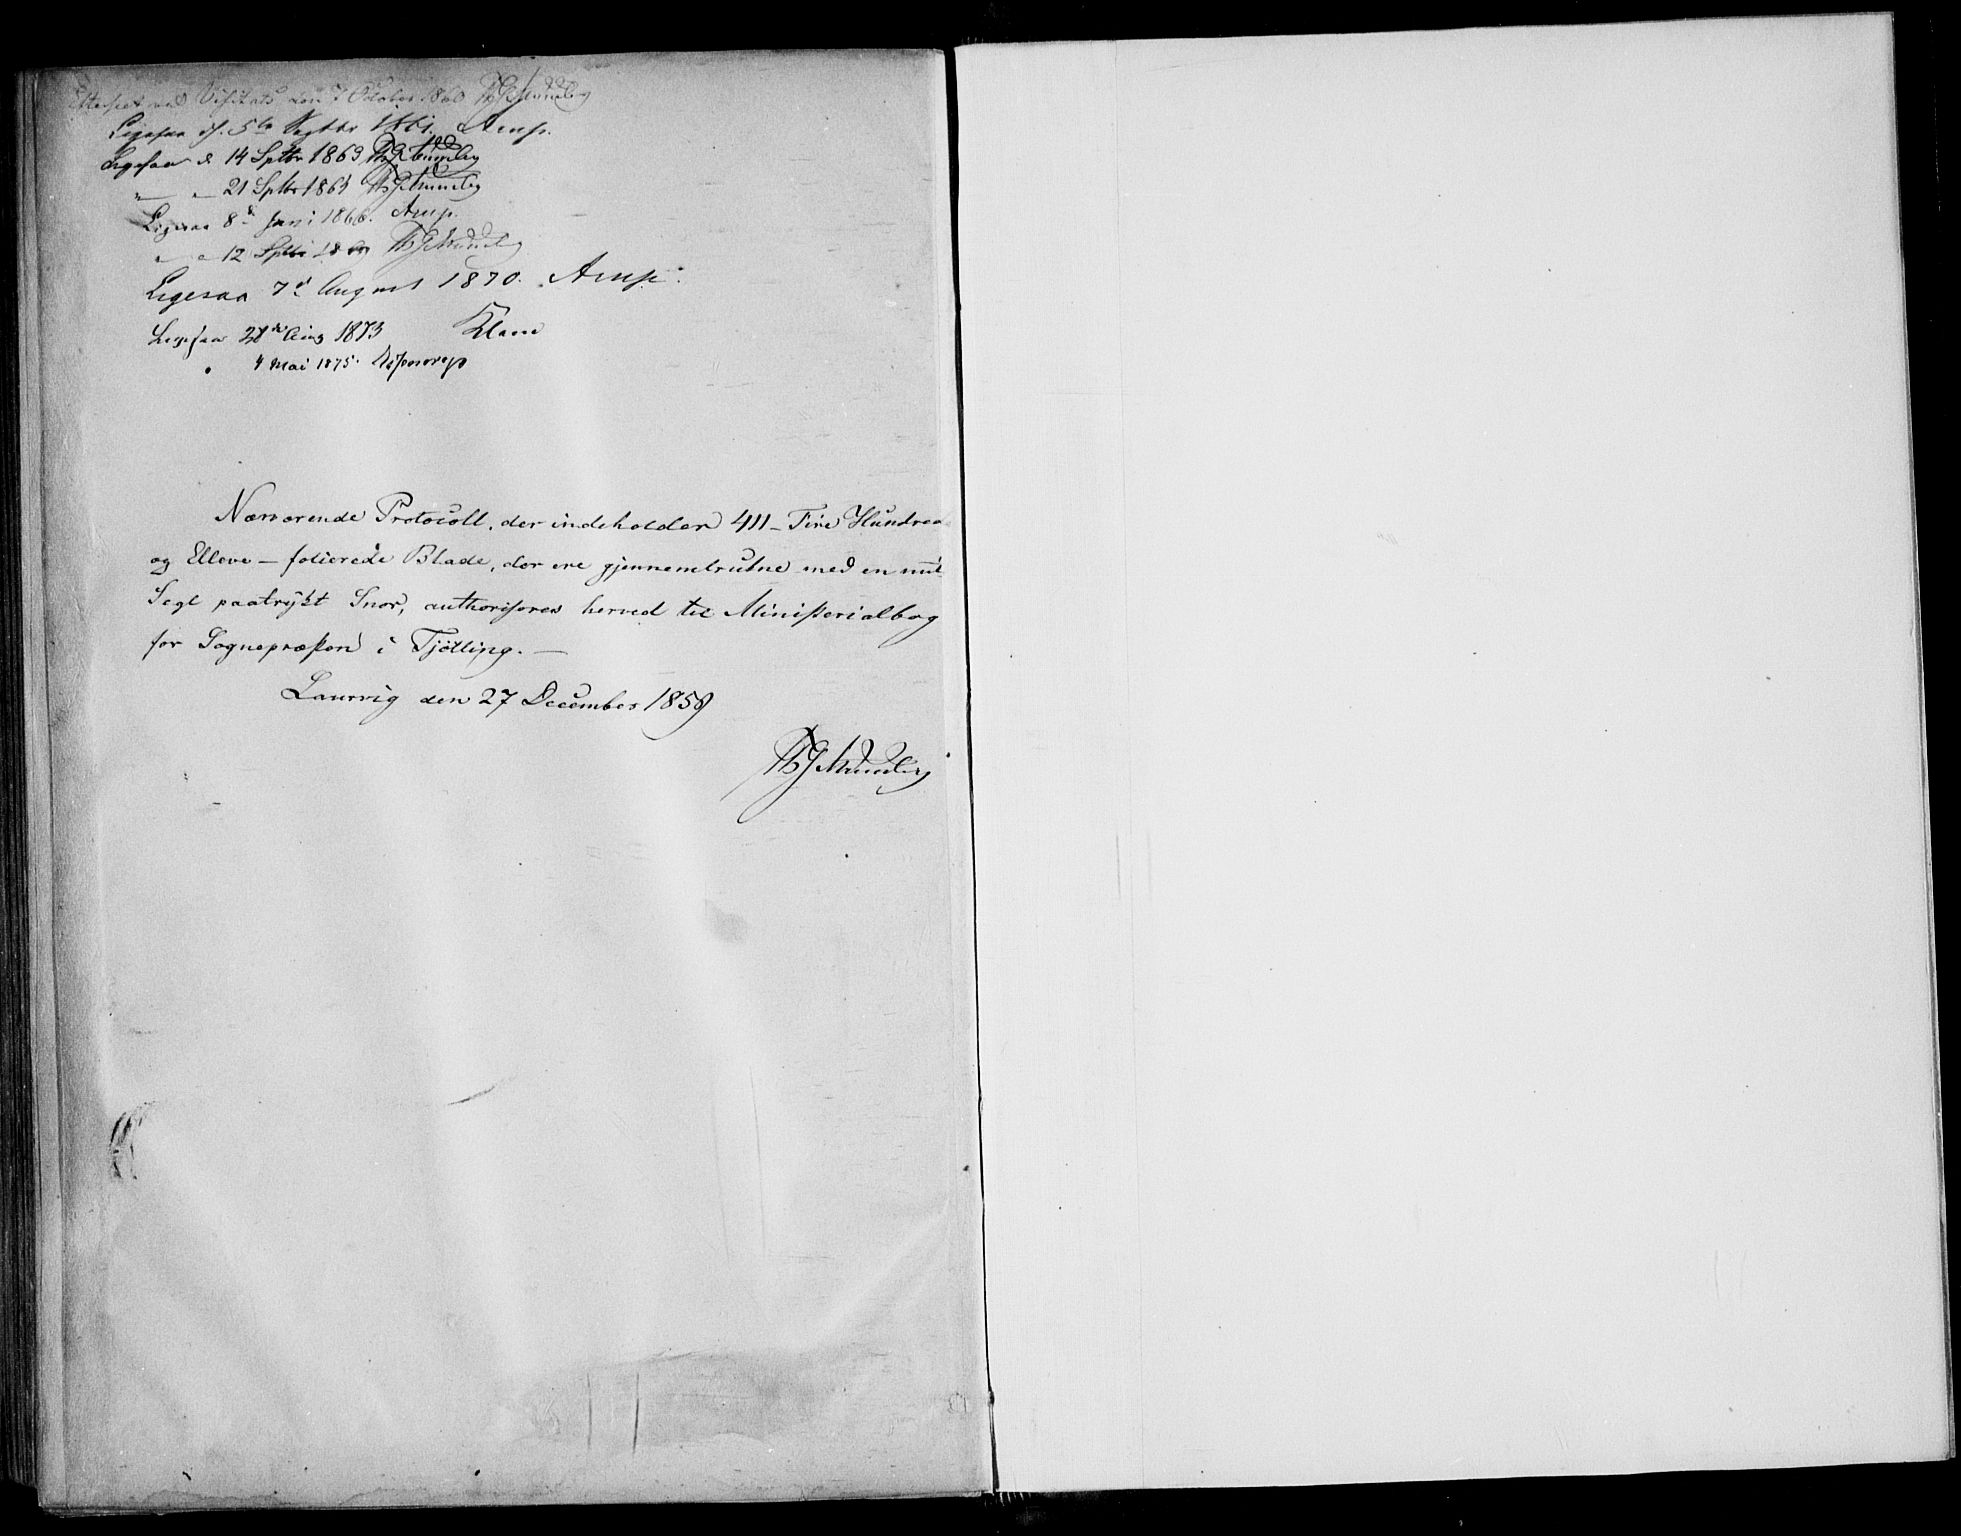 Efterseet ved Visitats den 7 October 1860
Ligesaa d. 5te Septbr 1861. Arup.
Ligesaa d 14 Sptbr 1863
" " 21 Sptbr 1864
Ligesaa 8d Juni 1866. Arup.
" " 12 Sptbr
Ligesaa 7d August 1870. Arup.
Ligesaa 28de Aug 1873
" 4 Mai 1875.
Nærværende Protocoll, der indeholder 411 – Fire Hundrede
og Elleve – folierede Blade, der ere gjennemtrukne med en mit
Segl paatrykt Snor, authoriseres herved til Ministerialbog
for Sognepræsten i Tjølling. –
Laurvig den 27 December 1859